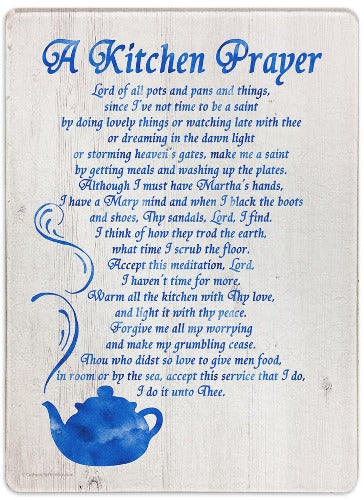 A Kitchen Prayer
Lord of all pots and pans and things,
since I've not time to be a saint
by doing lovely things or watching late with thee
or dreaming in the dawn light
or storming heaven's gates, make me a saint
by getting meals and washing up the plates.
Although I must have Martha's hands,
I have a Mary mind and when I black the boots
and shoes, Thy sandals, Lord, I find.
I think of how they trod the earth,
what time I scrub the floor.
Accept this meditation, Lord,
I haven't time for more.
Warm all the kitchen with Thy love,
and light it with thy peace.
Forgive me all my worrying
and make my grumbling cease.
Thou who didst so love to give men food,
in room or by the sea, accept this service that I do,
I do it unto Thee.